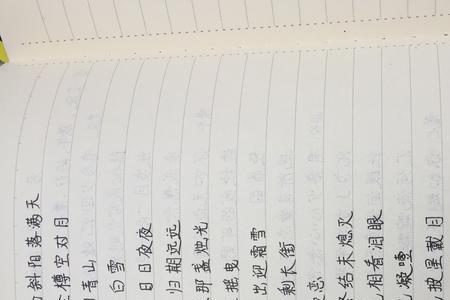 斜阳落满天
樽空对月
青山
白雪
日日夜夜
归期远远
那盏烛光
摇曳
出迎霜雪
剩长街
恋
结未熄灭
相看泪眼
凝噎
披星戴月